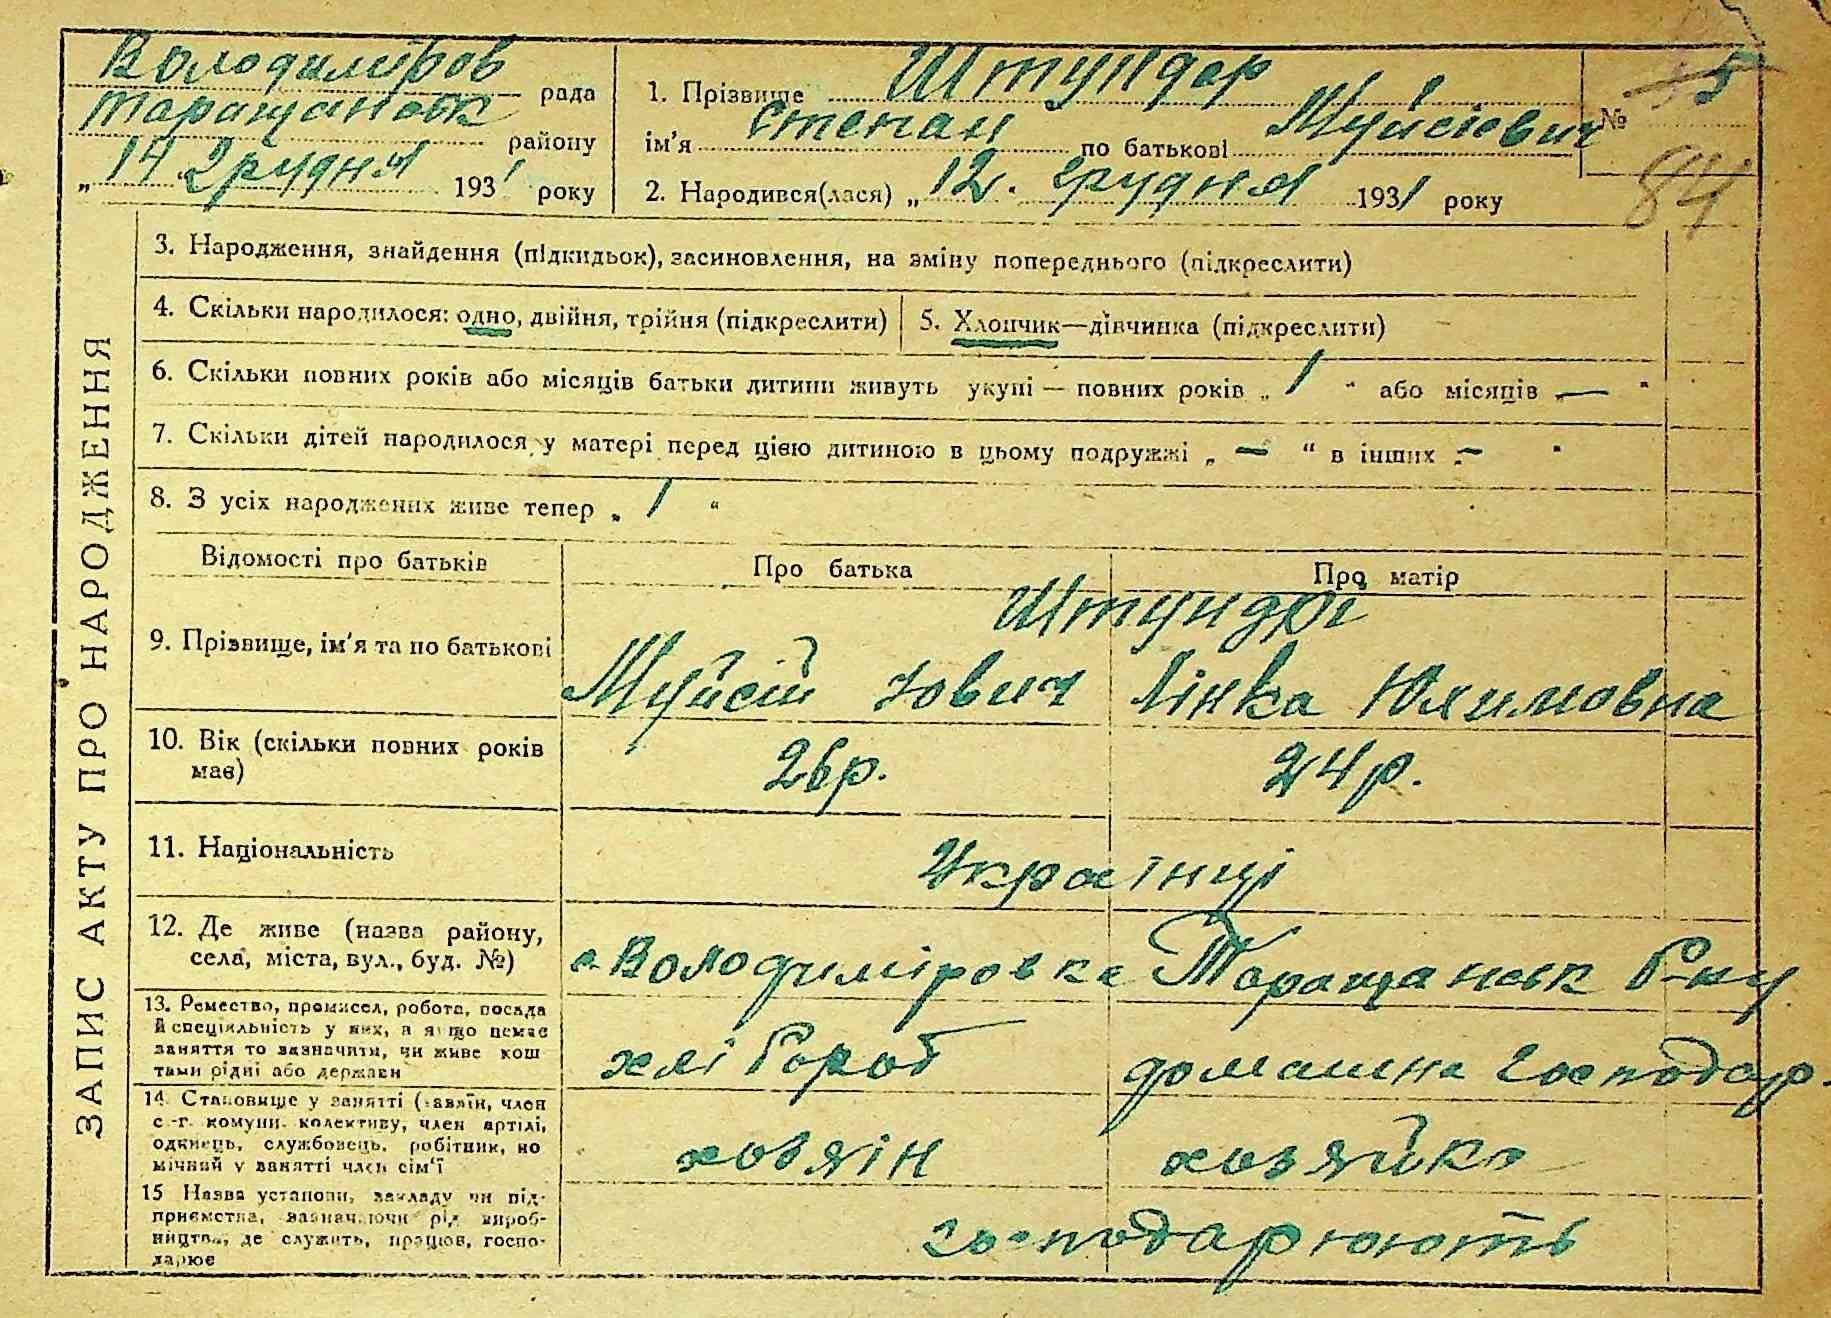 Володиміров
Таращанськ рада
району
"14" грудня 1931 року
1. Прізвище Штундер
ім'я Степан по батькові Муйсієвич
2. Народився(лася) „12. грудня 1931 року
№ 5
84
ЗАПИС АКТУ ПРО НАРОДЖЕННЯ
3. Народження, знайдення (підкидьок), засиновлення, на зміну попереднього (підкреслити)
4. Скільки народилося: одно, двійня, трійня (підкреслити) 5. Хлопчик—дівчинка (підкреслити)
6. Скільки повних років або місяців батьки дитини живуть укупі — повних років „ 1 “ або місяців „ — “
7. Скільки дітей народилося у матері перед цією дитиною в цьому подружжі „ — “ в інших „ — “
8. З усіх народжених живе тепер „ 1 “
Відомості про батьків Про батька Про матір
Штундрі
9. Прізвище, ім'я та по батькові Муйсій Іович Лінка Юхимовна
10. Вік (скільки повних років має) 26р. 24р.
11. Національність Українці
12. Де живе (назва району,
села, міста, вул., буд. №) с. Володиміровка Таращанськ Р-ну
13. Ремество, промисел, робота, посада
й спеціяльність у них, а якщо немає
заняття то зазначити, чи живе кош
тами рідні або держави хлібороб домашнє господар.
14. Становище у занятті (хазяїн, член
с.-г. комуни, колективу, член артілі,
одинець, службовець, робітник, по
мічний у занятті член сім'ї хозяїн хозяйка
15 Назва установи, закладу чи під-
приємства, зазначаючи рід вироб-
ництва, де служить, працює, госпо-
дарює господарюють